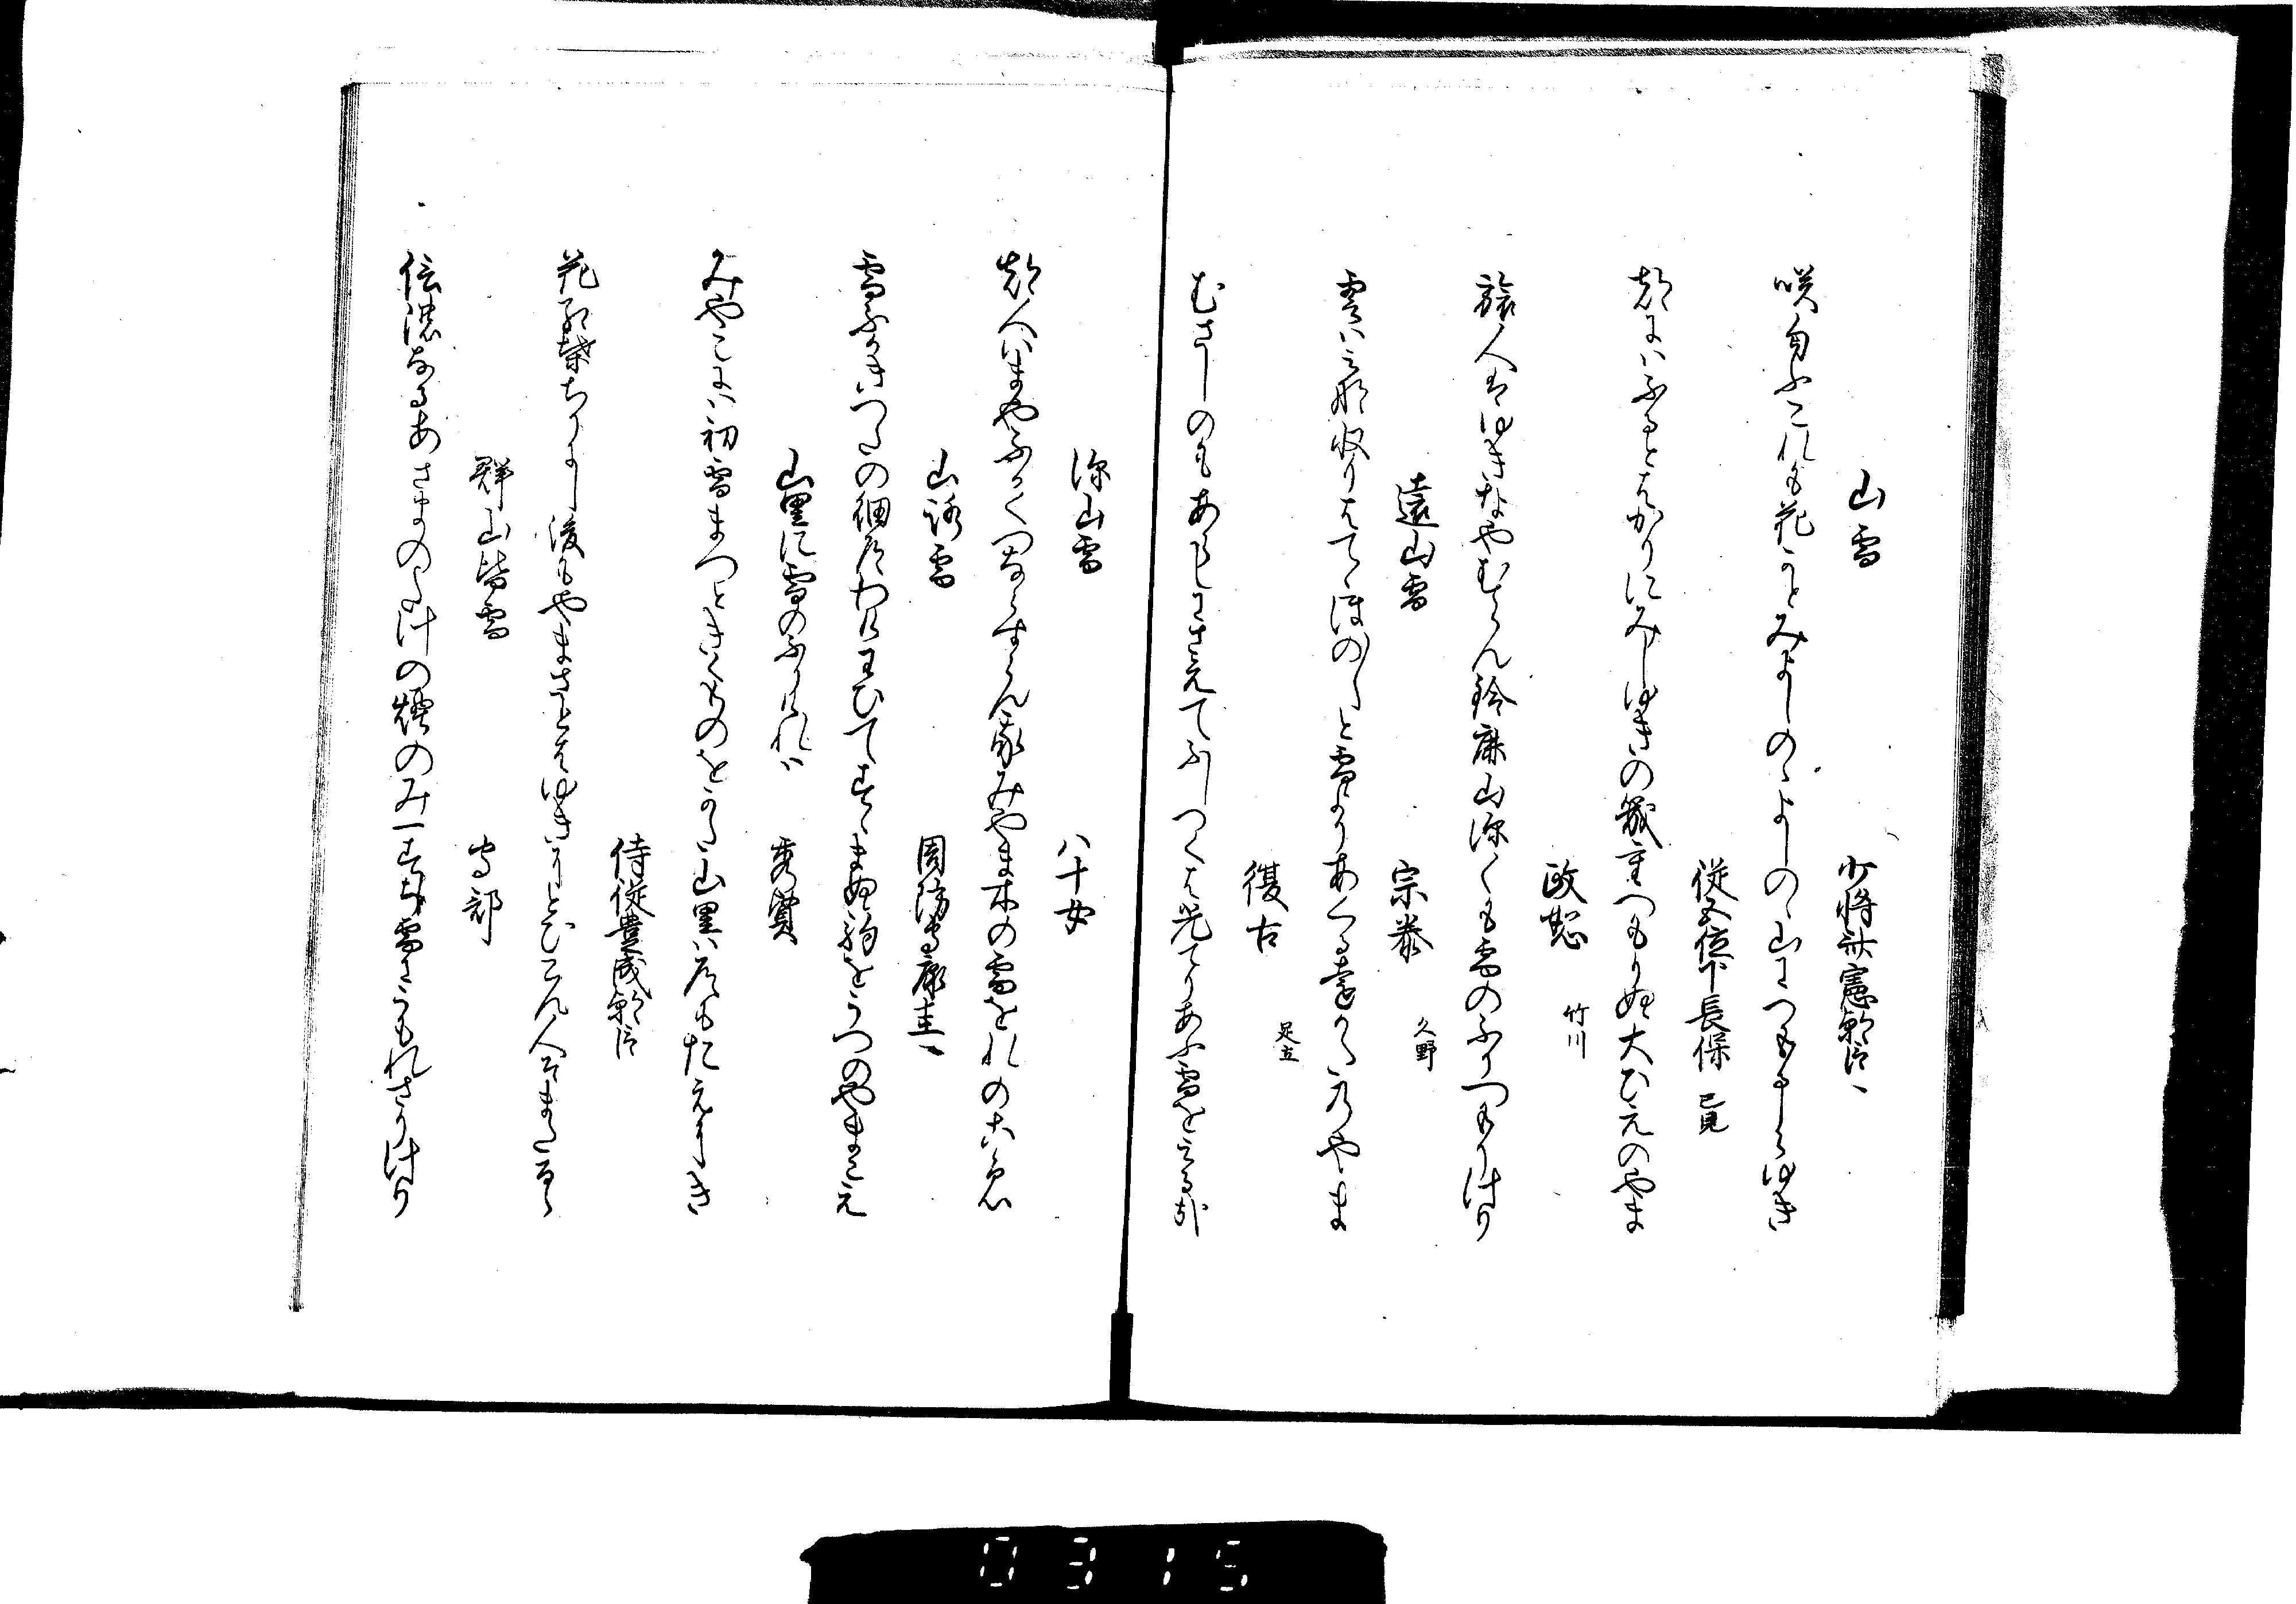 山雪
少将計憲朝臣
咲匂ふこれも花かとみよしのゝよしのゝ山につもるしらゆき
従五位下長保 已見
都にはふるとはかりにみしゆきの幾重つもりぬ大ひえのやま
政恕 竹川
旅人はゆきなやむらん鈴鹿山深くも雪のふりつもりけり
遠山雪
宗泰 久野
雲はみな収りはてゝほの〳〵と雪よりあくる
やま
復古 足立
むさしのもあらしにさえてふしつくは光てりあふ雪をみるかな
深山雪
八十女
都人いまやふかくつもるらんみやま木の雪をれのこゑ
山路雪
周防守康圭
雪ふかきつたの細道わけわひてすゝまぬ駒をうつのやまこえ
山里に雪のふりけれは
秀賢
みやこには初雪まつときくものをかた山里は道もたえにき
侍従豊成朝臣
花紅葉ちりにし後もやまさとはゆきにとひこん人そまたるゝ
群山皆雪
守部
信濃なるあさまのたけの煙のみ一すち雪にうもれさりけり
0315